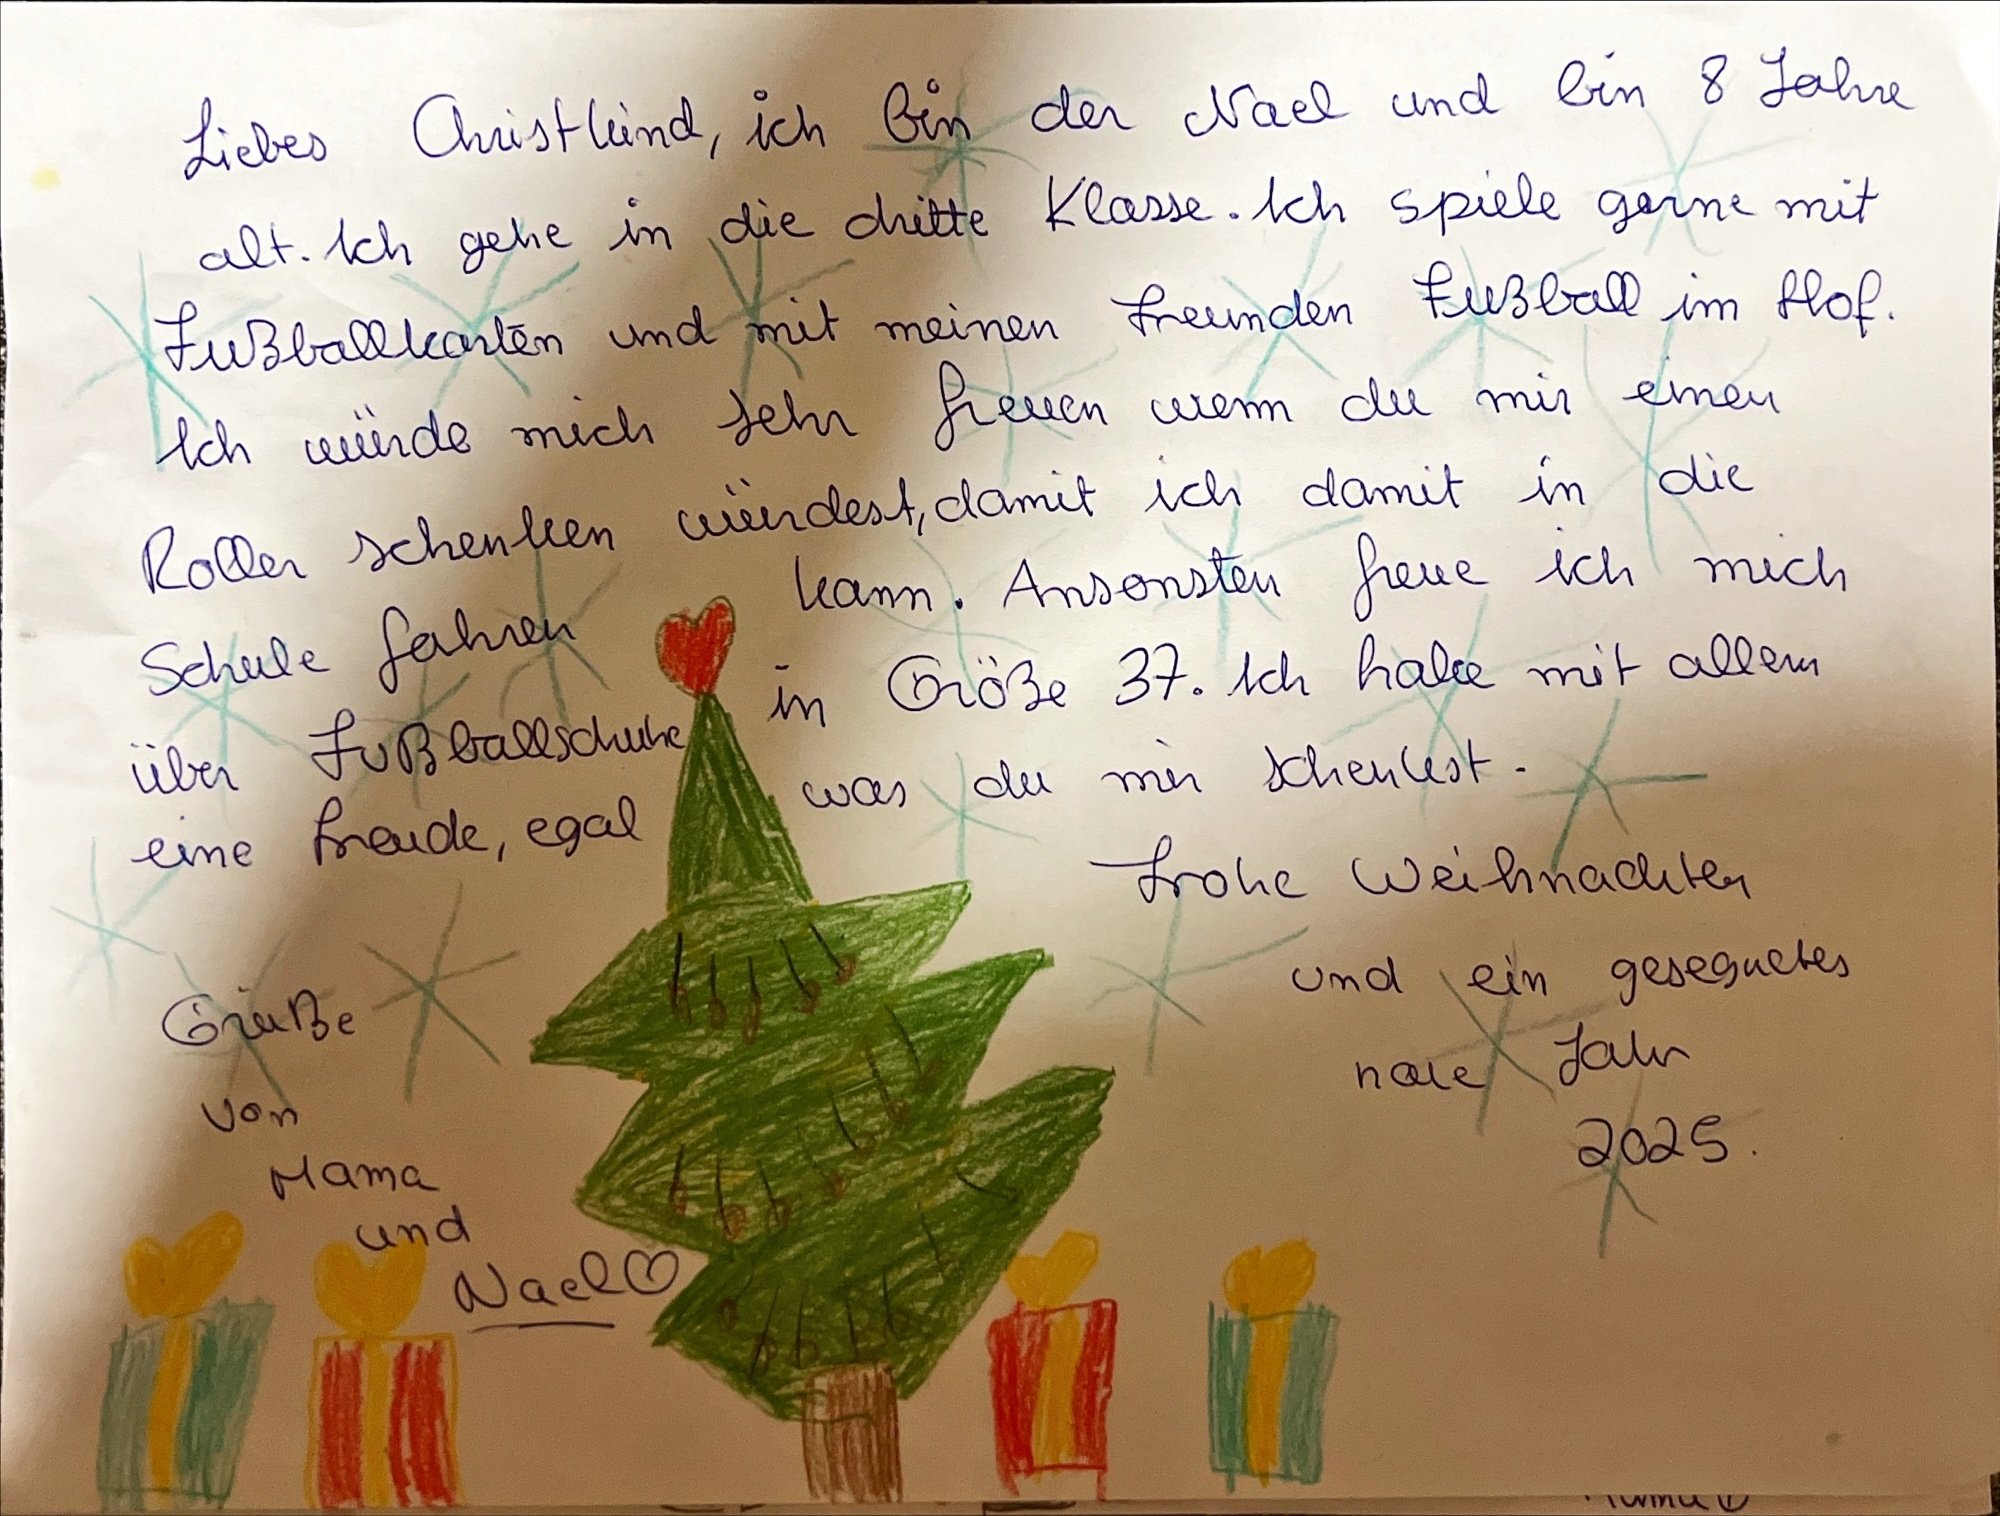 Liebes Christkind, ich bin der Nael und bin 8 Jahre
alt. Ich gehe in die dritte Klasse. Ich spiele gerne mit
Fußballkarten und mit meinen Freunden Fußball im Hof.
Ich würde mich sehr freuen wenn du mir einen
Roller schenken würdest, damit ich damit in die
Schule fahren kann. Ansonsten freue ich mich
über Fußballschuhe in Größe 37. Ich habe mit allem
eine Freude, egal was du mir schenkst.
Frohe Weihnachten
und ein gesegnetes
neue Jahr
2025.
Grüße
von
Mama
und
Nael